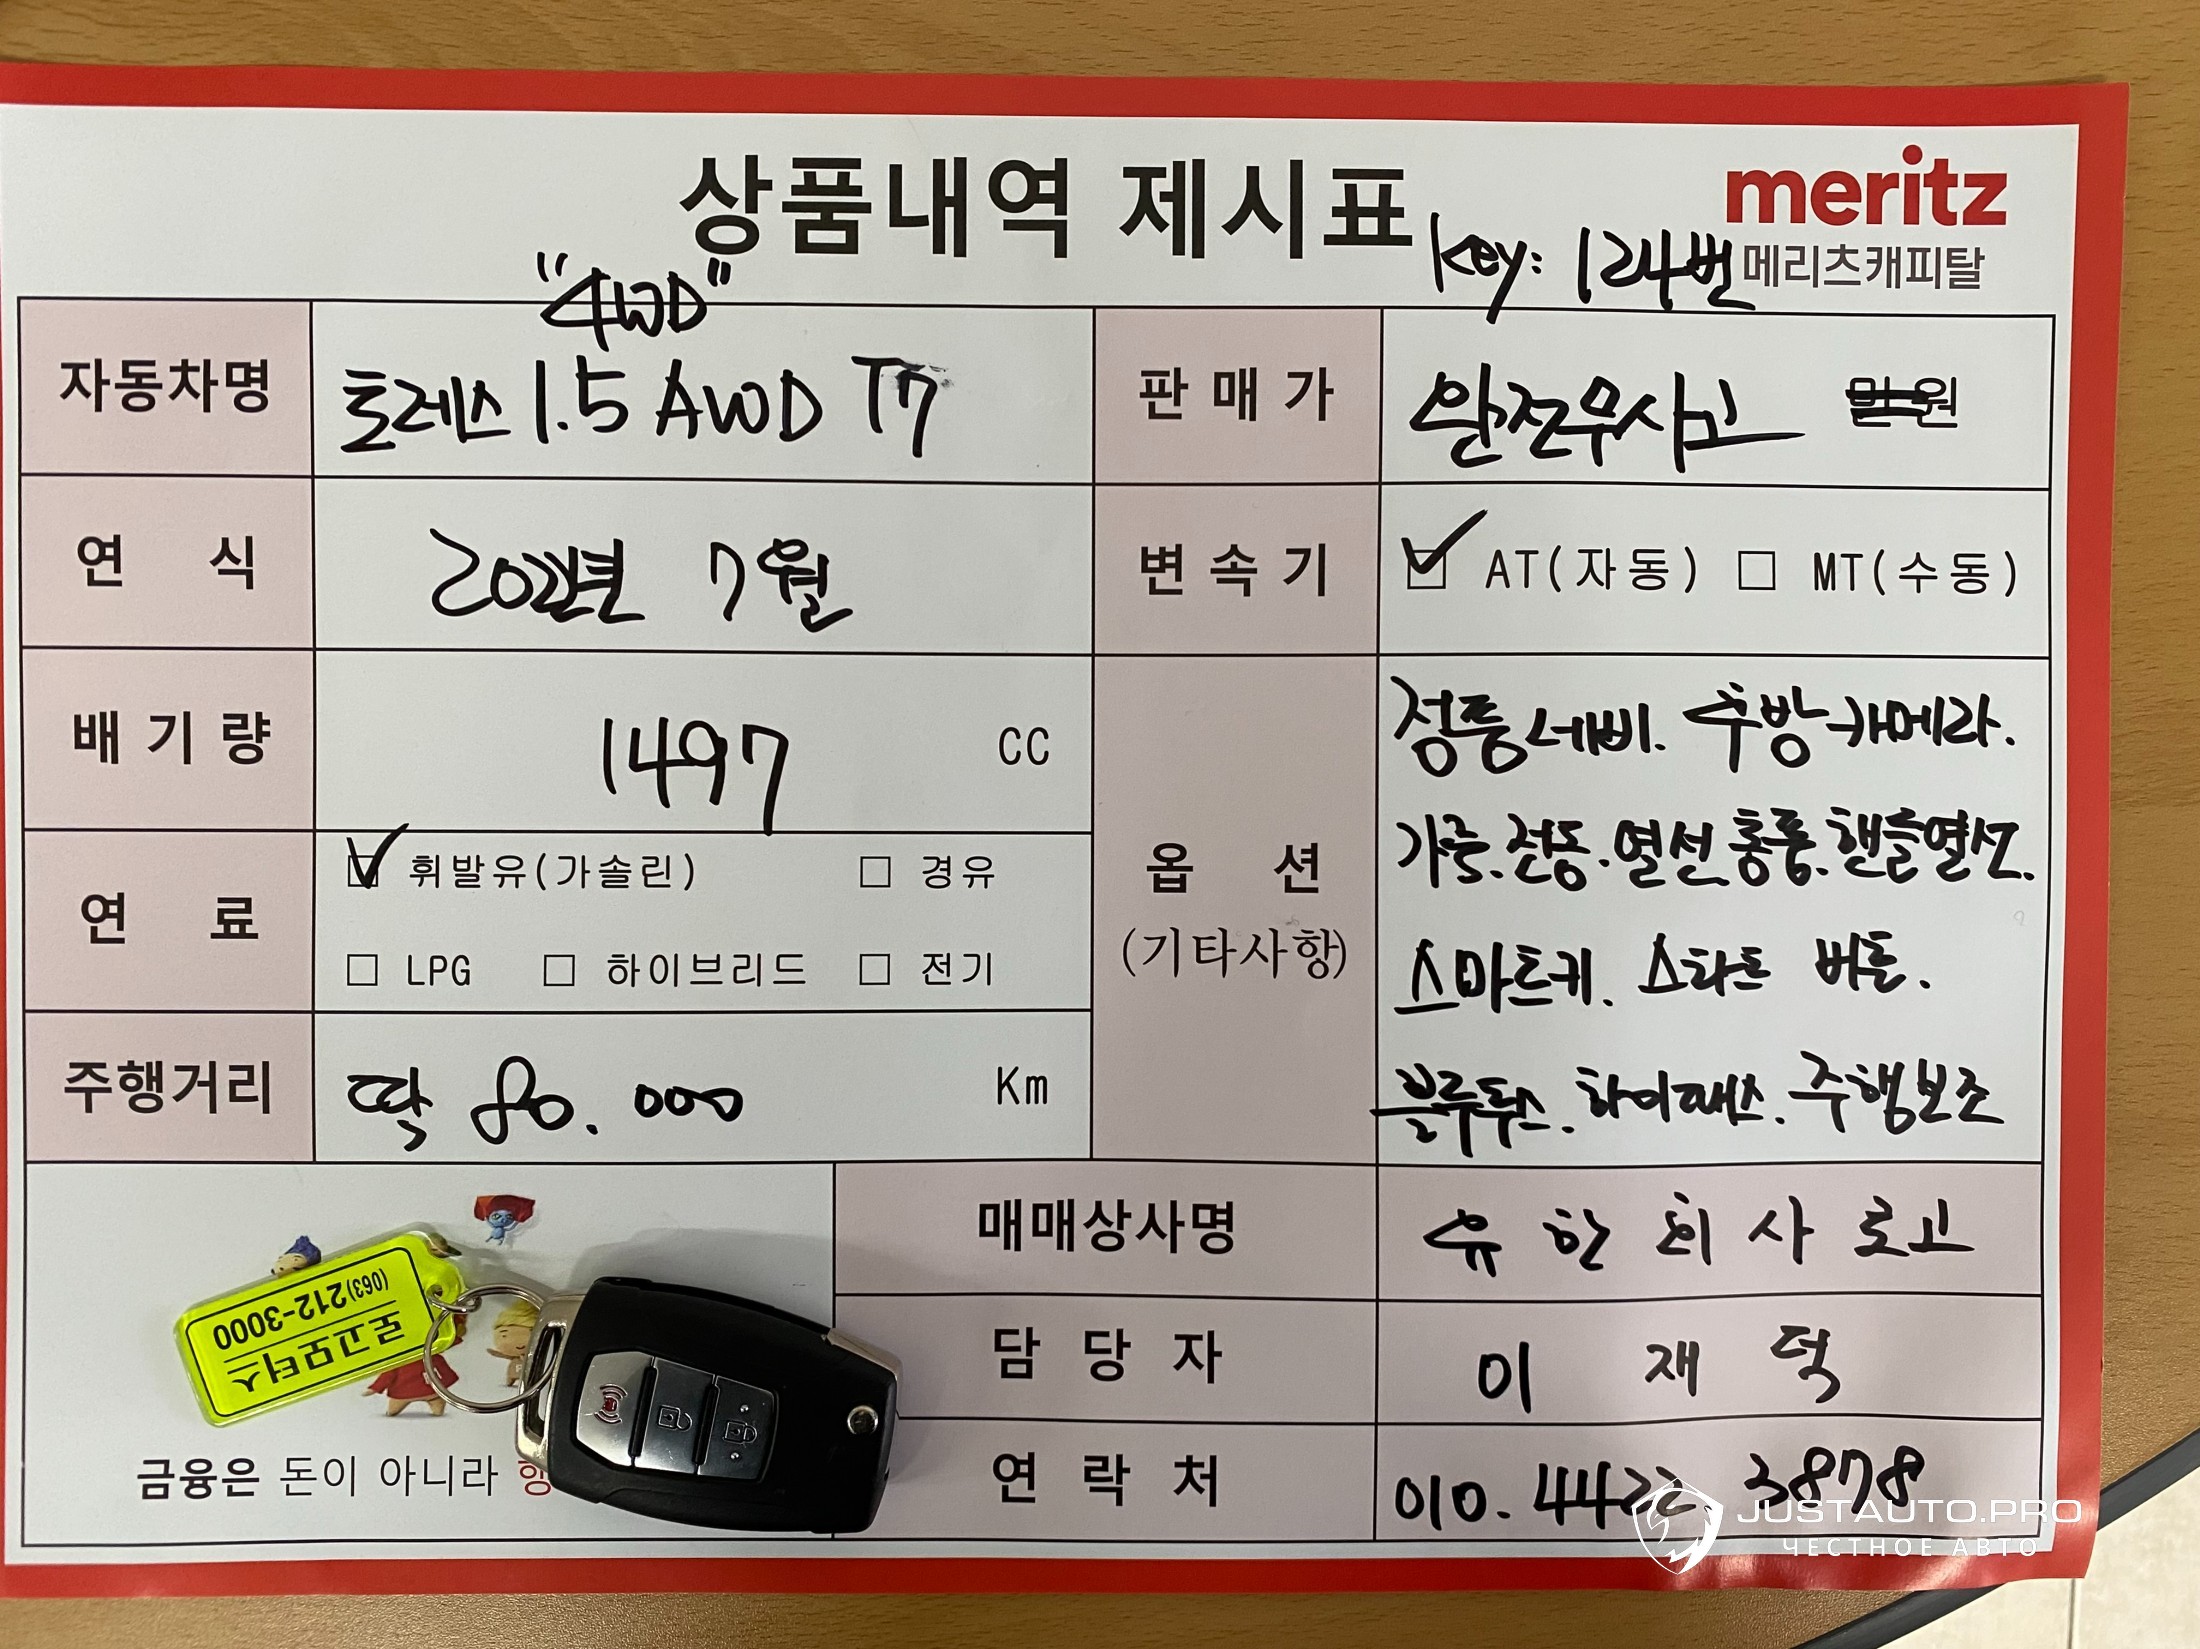 상품내역 제시표
meritz
메리츠캐피탈
Key: 124번
"4WD"
자동차명 토레스 1.5 AWD T7
판매가 완전무사고 만원
연식 2022년 7월
변속기 ☑ AT(자동) □ MT(수동)
배기량 1497 CC
연료 ☑ 휘발유(가솔린) □ 경유
□ LPG □ 하이브리드 □ 전기
주행거리 딱 80.000 Km
옵션
(기타사항)
정품네비. 후방카메라.
가죽.전동.열선.통풍.핸들열선.
스마트키. 스타트 버튼.
블루투스. 하이패스. 주행보조
매매상사명 유한회사로고
담당자 이재덕
연락처 010.4422.3878
로고모터스
(063)212-3000
금융은 돈이 아니라
JUSTAUTO.PRO
ЧЕСТНОЕ АВТО